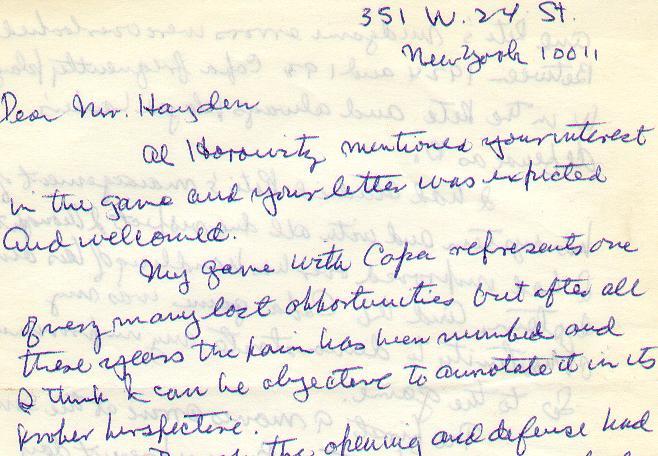 351 W. 24 St.
New York 10011
Dear Mr. Hayden
Al Horowitz mentioned your interest
in the game and your letter was expected
and welcomed.
My game with Capa represents one
of very many lost opportunities but after all
these years the pain has been numbed and
I think I can be objective to annotate it in its
proper perspective.
the opening and defense had